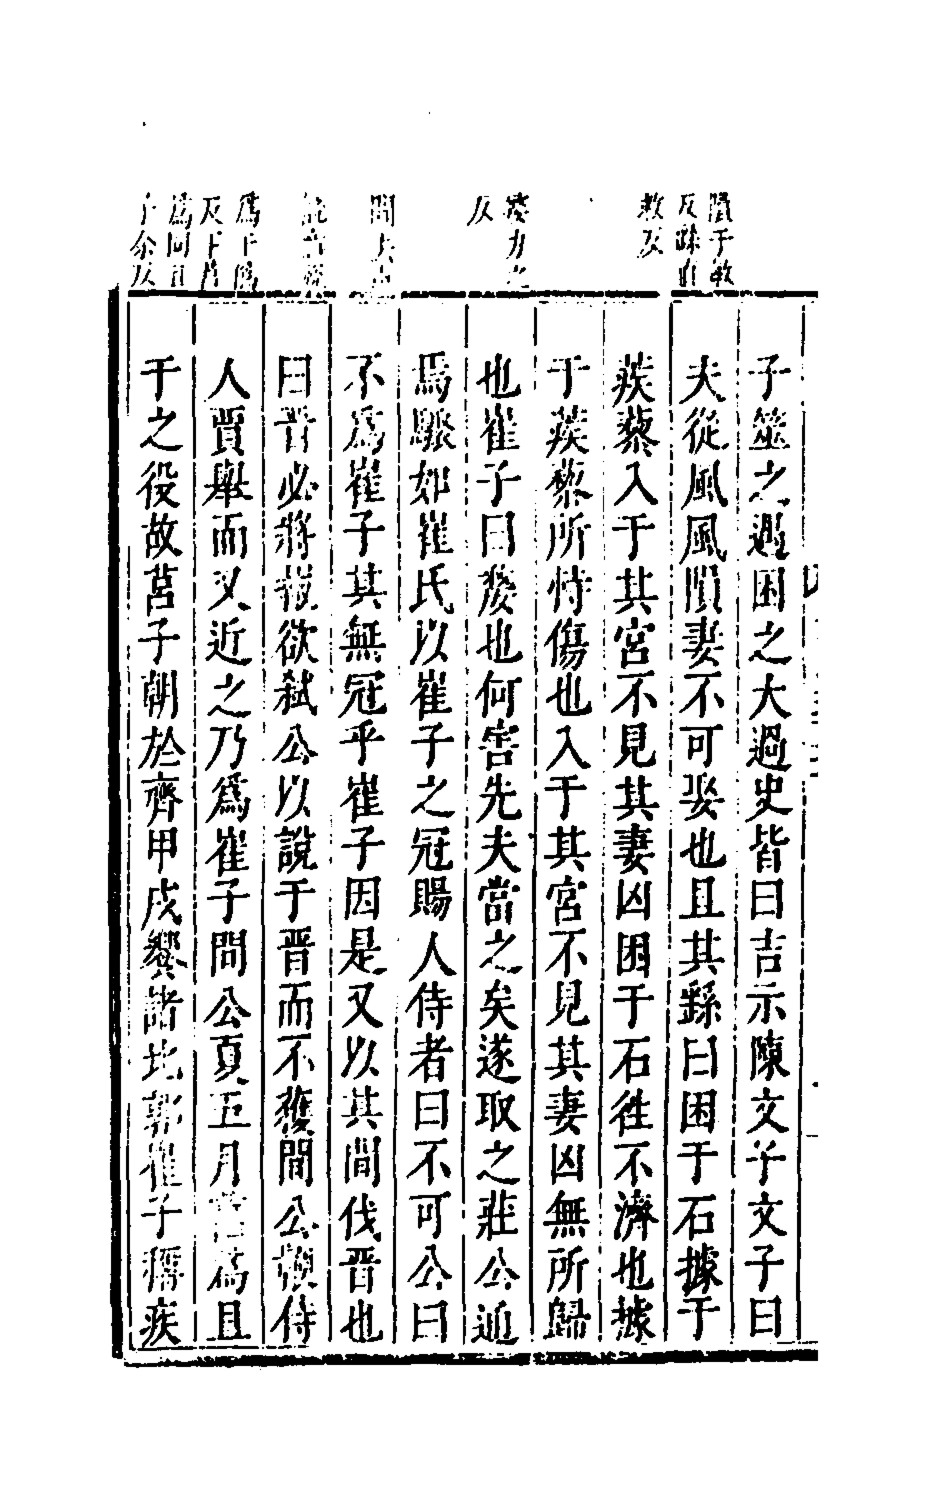 隕于敏
反繇直
救反
嫠力之
反
間去声
說音悅
爲于僞
反下莒
爲同且
子余反
子筮之遇困之大過史皆曰吉示陳文子文子曰
夫從風風隕妻不可娶也且其繇曰困于石據于
蒺藜入于其宮不見其妻凶困于石往不濟也據
于蒺藜所恃傷也入于其宮不見其妻凶無所歸
也崔子曰嫠也何害先夫當之矣遂取之莊公通
焉驟如崔氏以崔子之冠賜人侍者曰不可公曰
不爲崔子其無冠乎崔子因是又以其間伐晋也
曰晋必將報欲弒公以說于晋而不獲間公鞭侍
人賈舉而又近之乃爲崔子間公夏五月莒爲且
于之役故莒子朝於齊甲戌饗諸北郭崔子稱疾